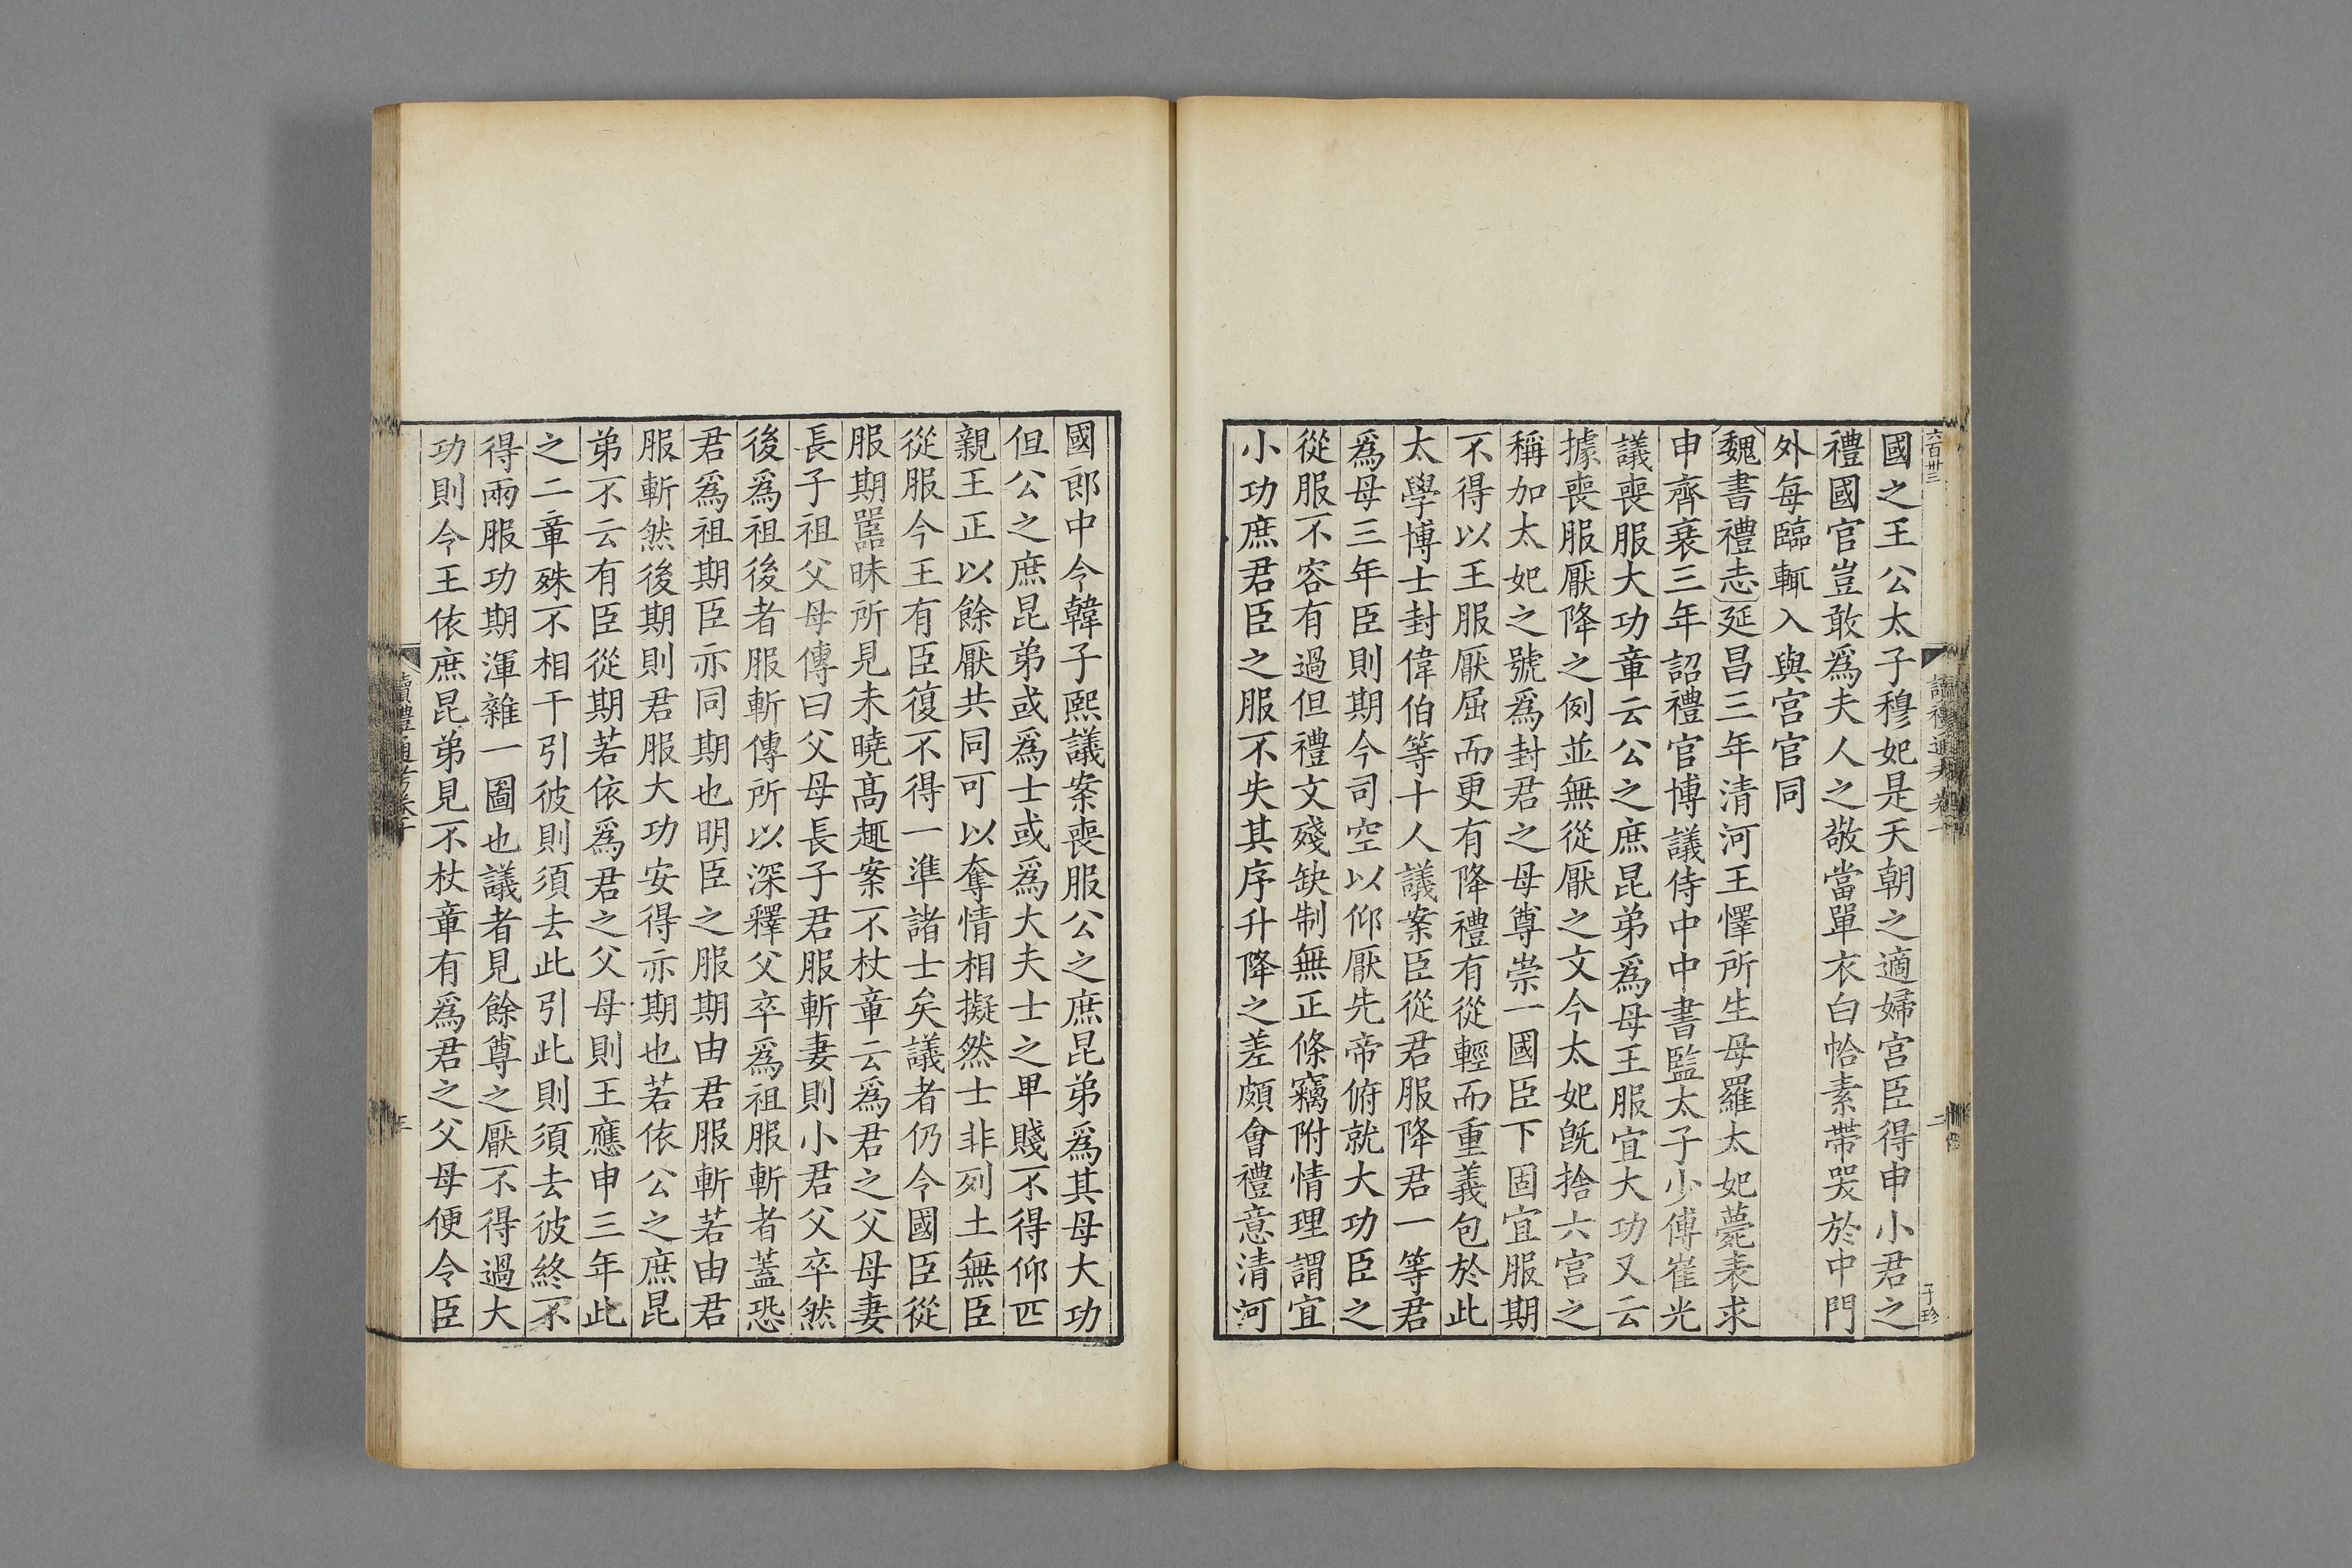 六百卅三
國之王公太子穆妃是天朝之適婦宮臣得申小君之
禮國官豈敢爲夫人之敬當單衣白帢素帶哭於中門
外每臨輒入與宮官同
魏書禮志延昌三年清河王懌所生母羅太妃薨表求
申齊衰三年詔禮官博議侍中中書監太子少傅崔光
議喪服大功章云公之庶昆弟爲母王服宜大功又云
據喪服厭降之例並無從厭之文今太妃旣捨六宮之
稱加太妃之號爲封君之母尊崇一國臣下固宜服期
不得以王服厭屈而更有降禮有從輕而重義包於此
太學博士封偉伯等十人議案臣從君服降君一等君
爲母三年臣則期今司空以仰厭先帝俯就大功臣之
從服不容有過但禮文殘缺制無正條竊附情理謂宜
小功庶君臣之服不失其序升降之差頗會禮意清河
國郎中令韓子熙議案喪服公之庶昆弟爲其母大功
但公之庶昆弟或爲士或爲大夫士之卑賤不得仰匹
親王正以餘厭共同可以奪情相擬然士非列土無臣
從服今王有臣復不得一準諸士矣議者仍令國臣從
服期嚚昧所見未曉高趣案不杖章云爲君之父母妻
長子祖父母傳曰父母長子君服斬妻則小君父卒然
後爲祖後者服斬傳所以深釋父卒爲祖服斬者蓋恐
君爲祖期臣亦同期也明臣之服期由君服斬若由君
服斬然後期則君服大功安得亦期也若依公之庶昆
弟不云有臣從期若依爲君之父母則王應申三年此
之二章殊不相干引彼則須去此引此則須去彼終不
得兩服功期渾雜一圖也議者見餘尊之厭不得過大
功則令王依庶昆弟見不杖章有爲君之父母便令臣
讀禮通考卷十
三